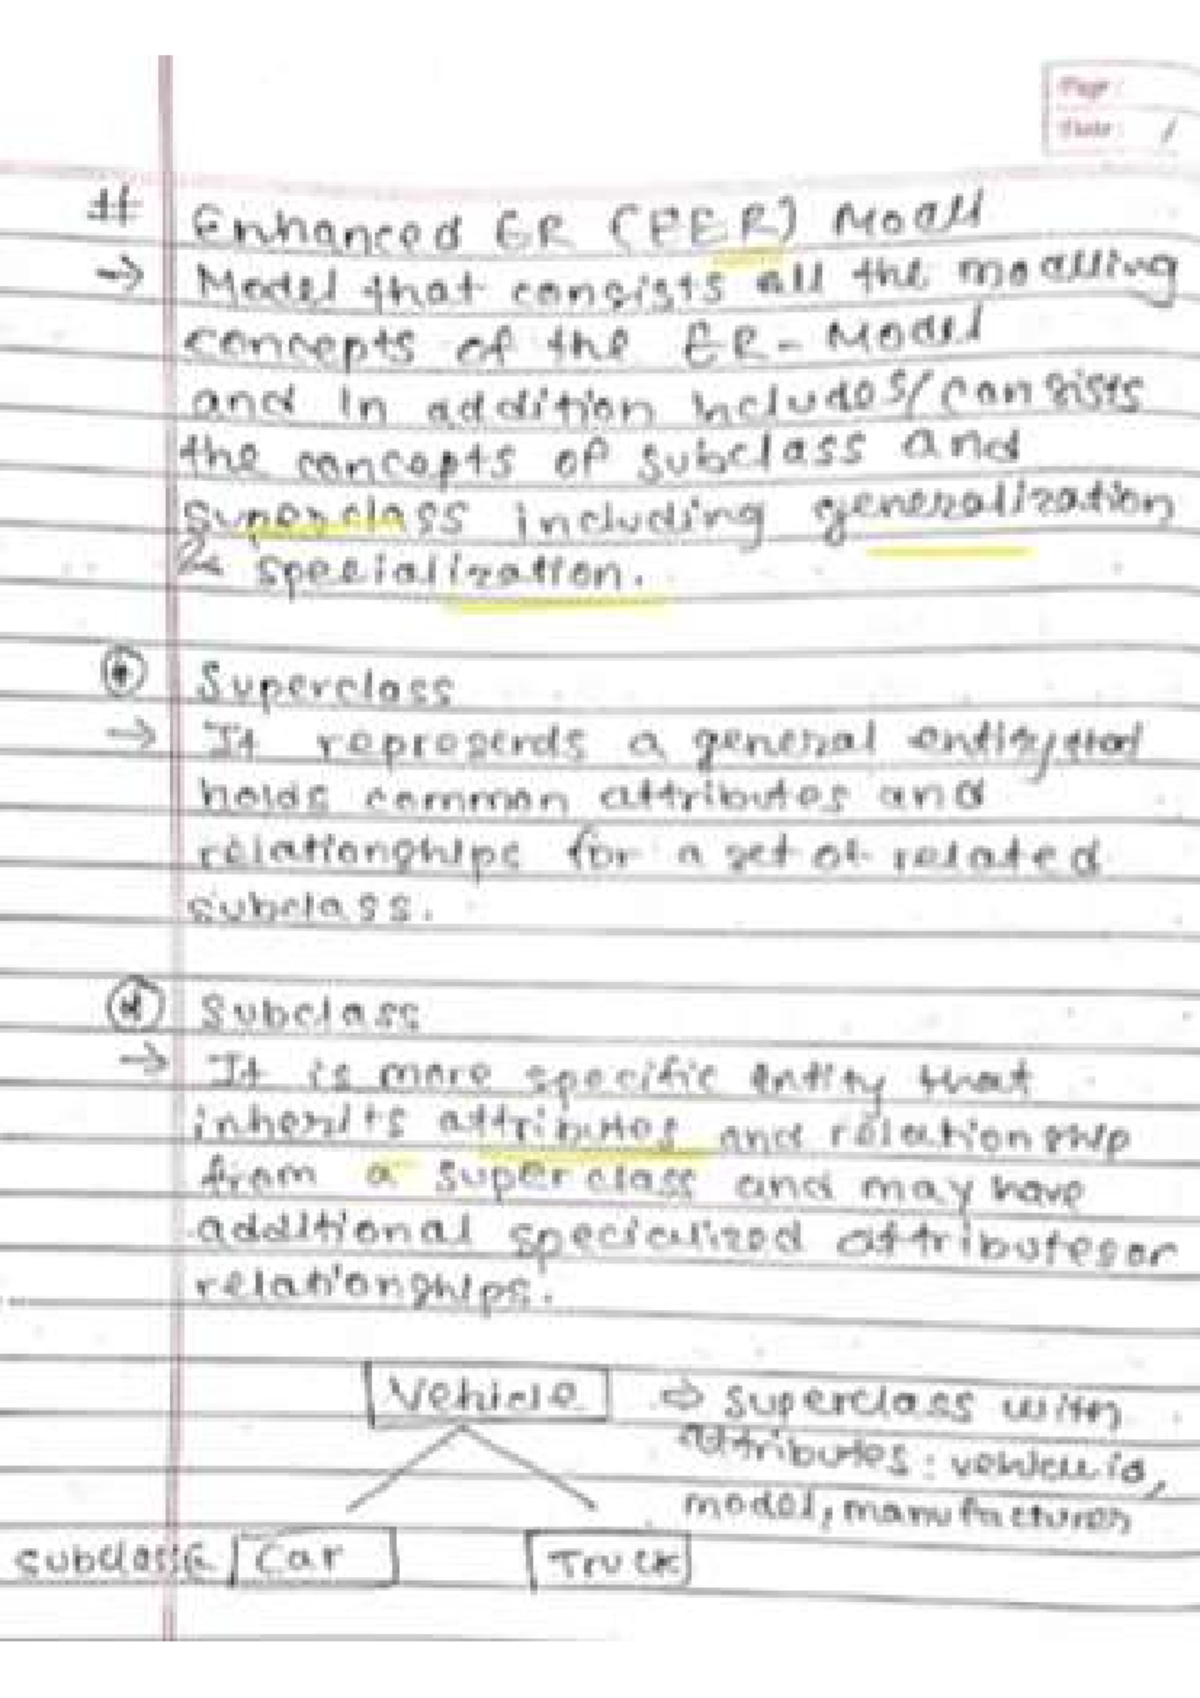 Page :
Date : /
# Enhanced ER (EER) Model
→ Model that consists all the modelling
concepts of the ER-Model
and in addition includes/consists
the concepts of subclass and
superclass including generalization
& specialization.
Superclass
→ It represents a general entity that
holds common attributes and
relationships for a set of related
subclass.
Subclass
→ It is more specific entity that
inherits attributes and relationship
from a superclass and may have
additional specialized attributes or
relationships.
Vehicle ⇒ superclass with
attributes : vehicle id,
model, manufacturer
subclass Car Truck